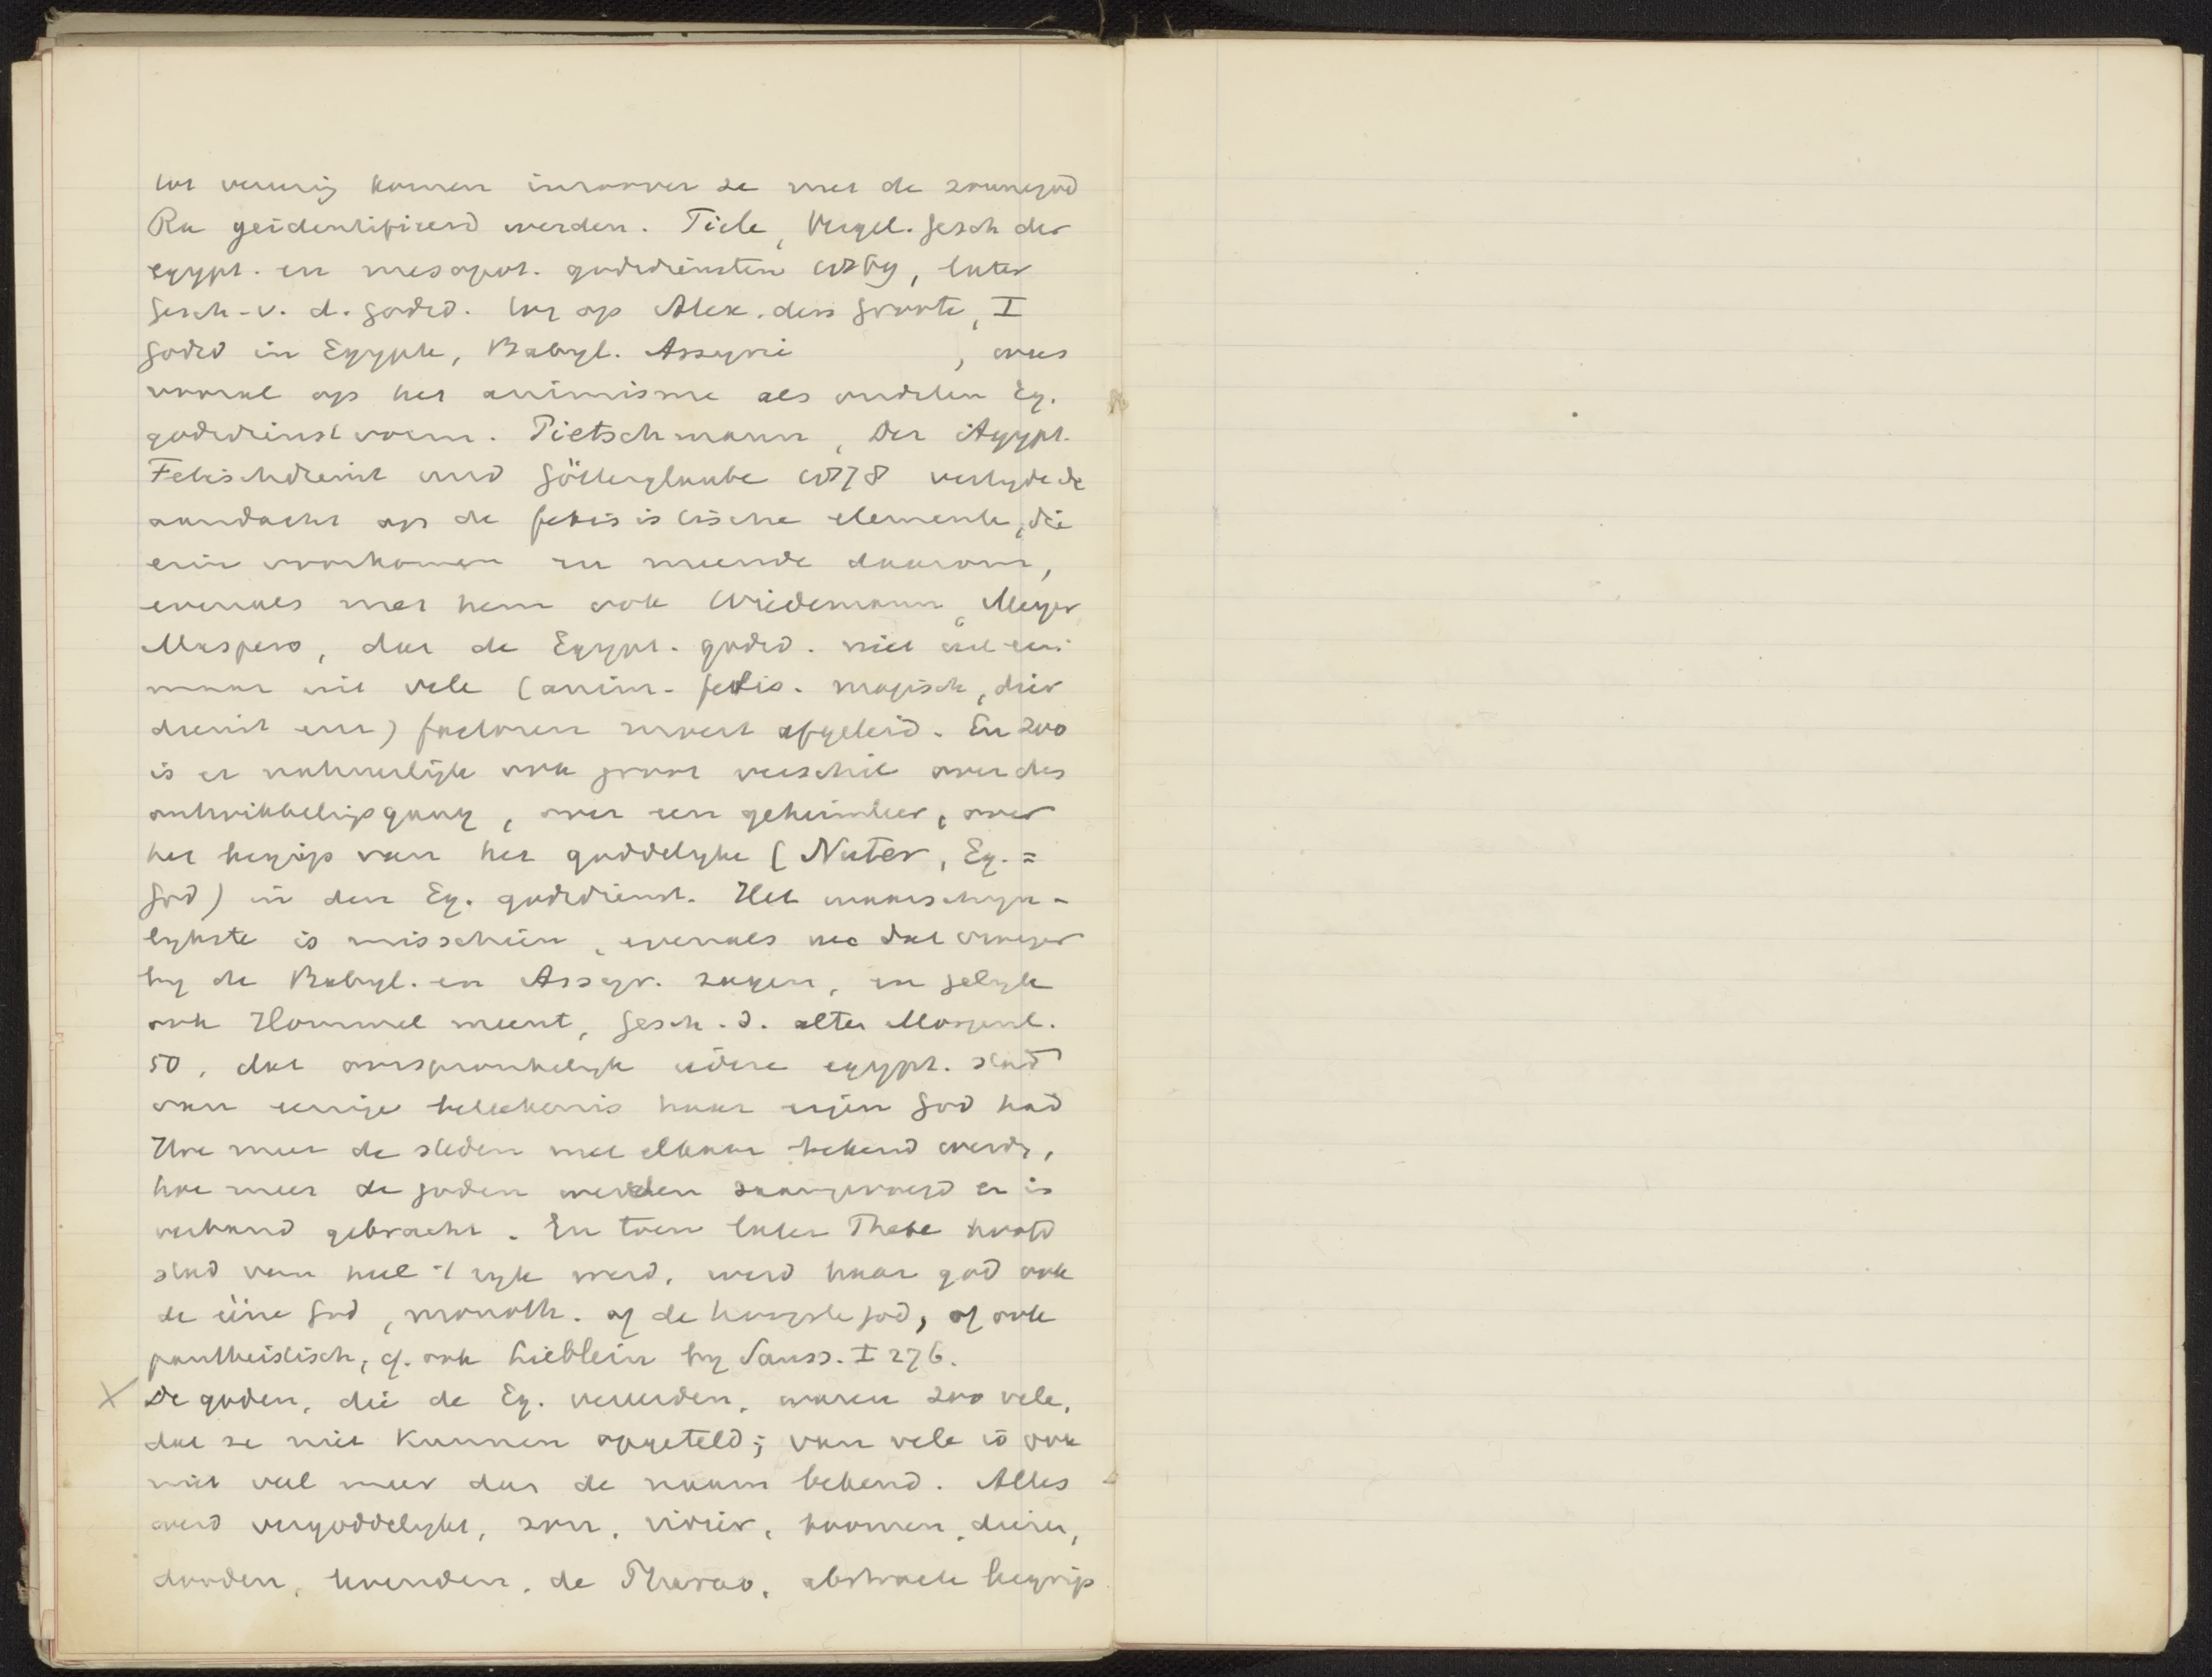 tot vereenig komen inzoover ze met de zonnegod
Ra geidentificeerd werden. Tiele, Vergel. Gesch der
egypt. en mesopot. godsdiensten 1869, later
Gesch. v. d. godsd. tot op Alex. den Groote, I
Godsd in Egypte, Babyl. Assyrie , wees
vooral op het animisme als oudsten Eg.
godsdienstvorm. Pietschmann, Der Ägypt.
Fetischdienst und Götterglaube 1878 vestigde de
aandacht op de fetisistische elemente, die
erin voorkomen en meende daarom,
evenals met hem ook Wiedemann, Meyer
Maspero, dat de Egypt. godsd. niet uit een
maar uit vele (anim. fetis. magisch, dier
dienst enz) factoren moest afgeleid. En zoo
is er natuurlijk ook groot verschil over des
ontwikkelingsgang, over een geheimleer, over
het begrip van het goddelyke (Nuter, Eg. =
God) in den Eg. godsdienst. Het waarschyn-
lykste is misschien, evenals we dat vroeger
by de Babyl. en Assyr. zagen, en gelyk
ook Hommel meent, Gesch. d. alten Morgenl.
50, dat oorspronkelyk iedere egypt. stad
van eenige beteekenis haar eigen God had
Hoe meer de steden met elkaar bekend werdn,
hoe meer de goden werden saamgevoegd en in
verband gebracht. En toen later Thebe hoofd
stad van heel 't ryk werd, werd haar god ook
de ééne God, monoth. of de hoogste god, of ook
pantheistisch, cf. ook Lieblein by Sauss. I 276.
X De goden, die de Eg. vereerden, waren zoo vele,
dat ze niet kunnen opgeteld; van vele is ook
niet veel meer dan de naam bekend. Alles
werd vergoddelykt, zon, rivier, boomen, dieren,
dooden, levenden, de Pharao, abstracte begrip